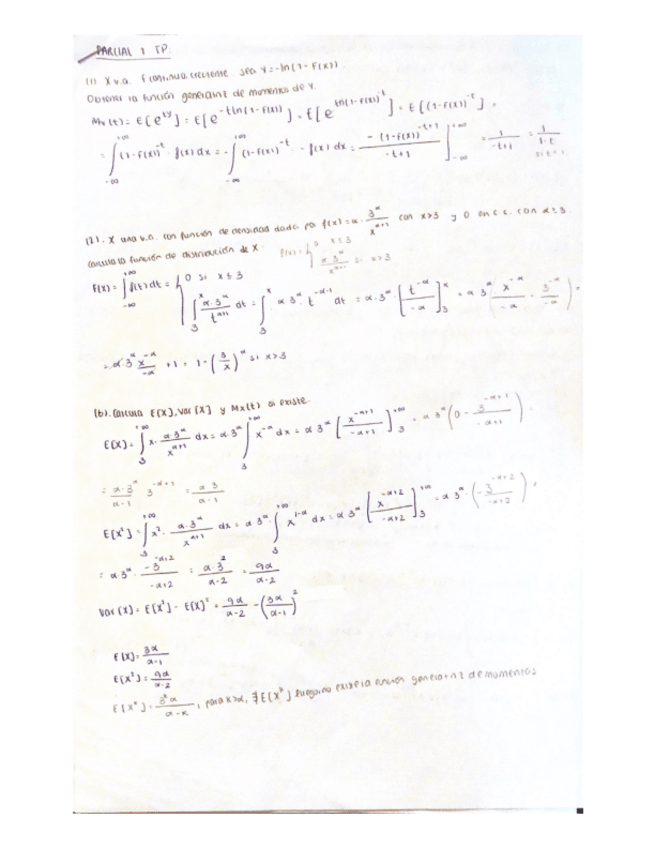 PARCIAL 1 TP.
(1) X v.a. F continua creciente. Sea Y = -ln(1 - F(x)).
Obtener la función generatriz de momentos de Y.
Mx(t) = E[e^{ty}] = E[e^{-t ln(1-F(x))}] = E[e^{ln(1-F(x))^{-t}}] = E[(1-F(x))^{-t}] =
= ∫_{-∞}^{+∞} (1-F(x))^{-t} · f(x) dx = - ∫_{-∞}^{+∞} (1-F(x))^{-t} · - f(x) dx = -(1-F(x))^{-t+1} / (-t+1) ]_{-∞}^{+∞} = 1/(-t+1) = 1/(1-t)
(2). X una v.a. con función de densidad dada por f(x) = α · 3^α / x^{α+1} con x>3 y 0 en c.c. con α
Calcula la función de distribución de X. f(x) = { 0 x ≤ 3
α·3^α / x^{α+1} si x>3
F(x) = ∫_{-∞}^{+∞} f(t) dt = { 0 si x ≤ 3
∫_3^x α·3^α / t^{α+1} dt = ∫_3^x α 3^α · t^{-α-1} dt = α·3^α · [t^{-α} / -α]_3^x = α 3^α (x^{-α} / -α - 3^{-α} / -α) =
= α·3^α x^{-α} / -α + 1 = 1 - (3/x)^α si x>3
(b). Calcula E[X], Var[X] y Mx(t) si existe.
E[X] = ∫_3^{+∞} x · α 3^α / x^{α+1} dx = α 3^α ∫_3^{+∞} x^{-α} dx = α 3^α [x^{-α+1} / -α+1]_3^{+∞} = α 3^α (0 - 3^{-α+1} / -α+1) =
= α·3^α 3^{-α+1} / α-1 = α 3 / α-1
E[X²] = ∫_3^{+∞} x² · α·3^α / x^{α+1} dx = α 3^α ∫_3^{+∞} x^{1-α} dx = α 3^α [x^{-α+2} / -α+2]_3^{+∞} = α 3^α · (-3^{-α+2} / -α+2) =
= α·3^α · -3^{-α+2} / -α+2 = α·3² / α-2 = 9α / α-2
Var(X) = E[X²] - E[X]² = 9α / α-2 - (3α / α-1)²
E[X] = 3α / α-1
E[X²] = 9α / α-2
E[X^k] = 3^k α / α-k, para k>α, ∄ E[X^k] luego no existe la función generatriz de momentos